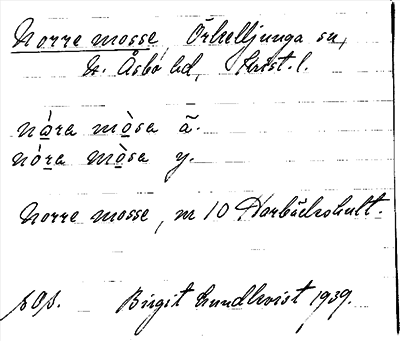 Norre mosse, Örkelljunga sn,
N. Åsbo hd, Krist. l.
nǻra mòsa ä.
nóra mòsa y.
Norre mosse, nr 10 Harbäckshult.
Birgit Lundkvist 1939.